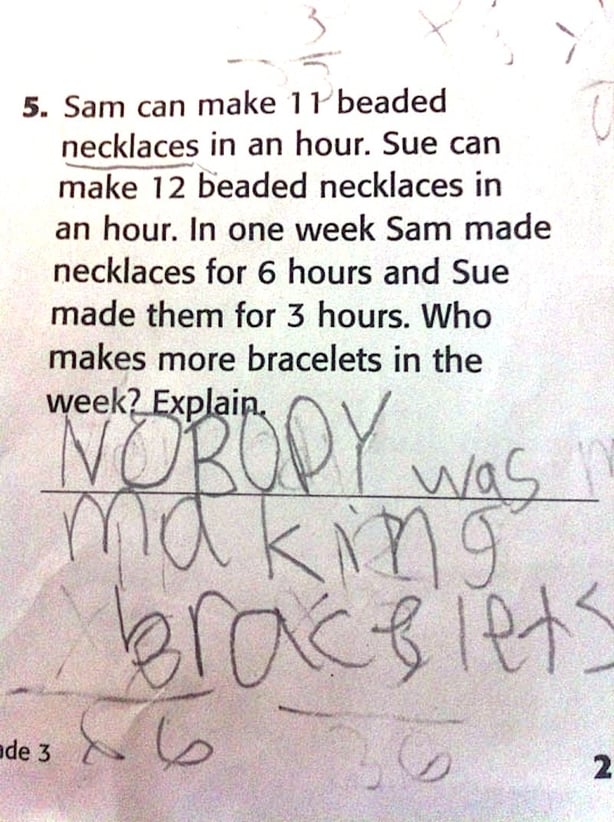 5. Sam can make 11 beaded
necklaces in an hour. Sue can
make 12 beaded necklaces in
an hour. In one week Sam made
necklaces for 6 hours and Sue
made them for 3 hours. Who
makes more bracelets in the
week? Explain.
NOBODY was
making
bracelets
de 3
2